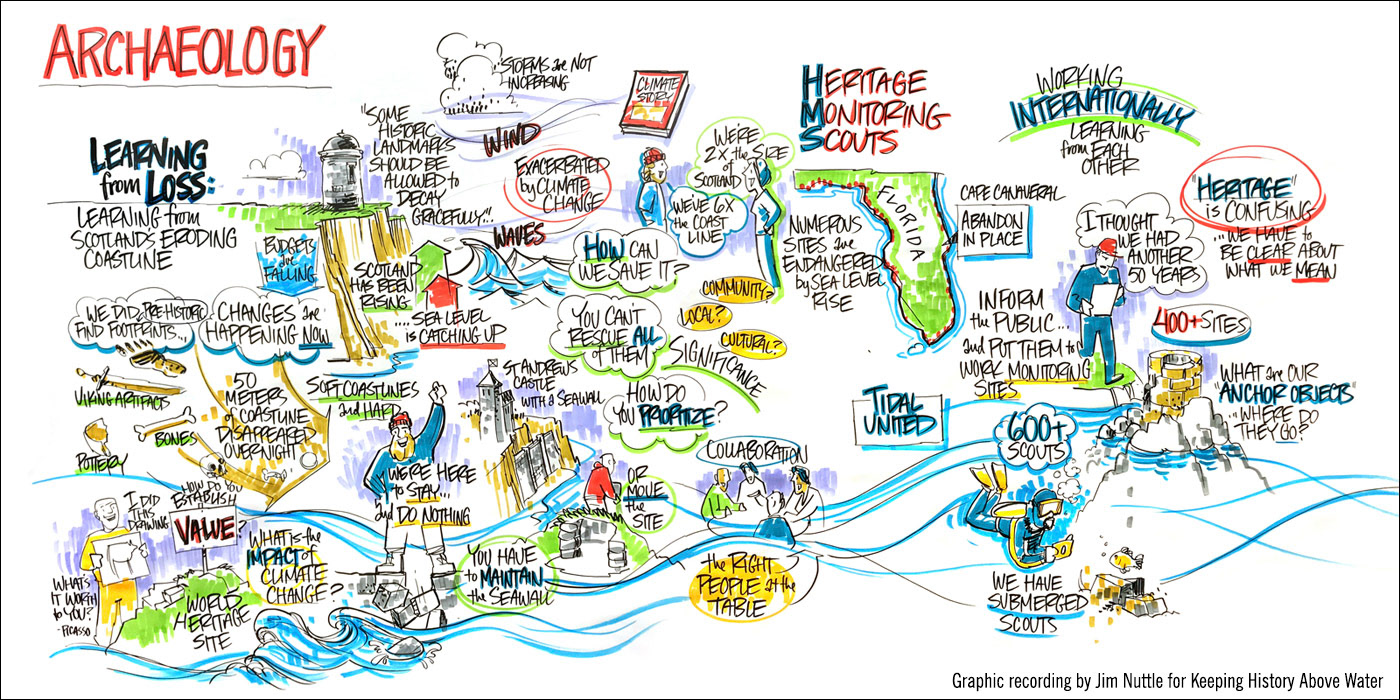 ARCHAEOLOGY
LEARNING
from LOSS:
LEARNING from
SCOTLANDS ERODING
COASTLINE
STORMS are NOT
INCREASING
WIND
"SOME
HISTORIC
LANDMARKS
SHOULD BE
ALLOWED to
DECAY
GRACEFULLY..."
EXACERBATED
by CLIMATE
CHANGE
WAVES
BUDGETS
are
FALLING
SCOTLAND
HAS BEEN
RISING
.... SEA LEVEL
is CATCHING UP
WE DID
FIND PRE-HISTORIC
FOOTPRINTS...
CHANGES are
HAPPENING NOW
VIKING ARTIFACTS
BONES
POTTERY
50
METERS
of COASTLINE
DISAPPEARED
OVERNIGHT
SOFT COASTLINES
and HARD
ST ANDREWS
CASTLE
WITH a SEAWALL
WE'RE HERE
to STAY...
and DO NOTHING
I DID
THIS
DRAWING
WHATS
IT WORTH
to YOU?
-PICASSO
HOW DO YOU
ESTABLISH
VALUE?
WORLD
HERITAGE
SITE
WHAT is the
IMPACT of
CLIMATE
CHANGE?
YOU HAVE
to MAINTAIN
the SEAWALL
CLIMATE
STORY
WE'RE
2X the SIZE
of
SCOTLAND
WE'VE 6X
the COAST
LINE
HOW CAN
WE SAVE IT?
YOU CAN'T
RESCUE ALL
of THEM
HOW DO
YOU PRIORITIZE?
COMMUNITY?
LOCAL?
CULTURAL?
SIGNIFICANCE
OR
MOVE
the
SITE
COLLABORATION
the RIGHT
PEOPLE at the
TABLE
HERITAGE
MONITORING
SCOUTS
FLORIDA
NUMEROUS
SITES are
ENDANGERED
by SEA LEVEL
RISE
CAPE CANAVERAL
ABANDON
IN PLACE
TIDAL
UNITED
WORKING
INTERNATIONALLY
LEARNING
from EACH
OTHER
I THOUGHT
WE HAD
ANOTHER
50 YEARS
"HERITAGE"
is CONFUSING
...WE HAVE to
BE CLEAR ABOUT
WHAT WE MEAN
INFORM
the PUBLIC...
and PUT THEM to
WORK MONITORING
SITES
400+ SITES
WHAT are OUR
"ANCHOR OBJECTS"
...WHERE DO
THEY GO?
600+
SCOUTS
WE HAVE
SUBMERGED
SCOUTS
Graphic recording by Jim Nuttle for Keeping History Above Water